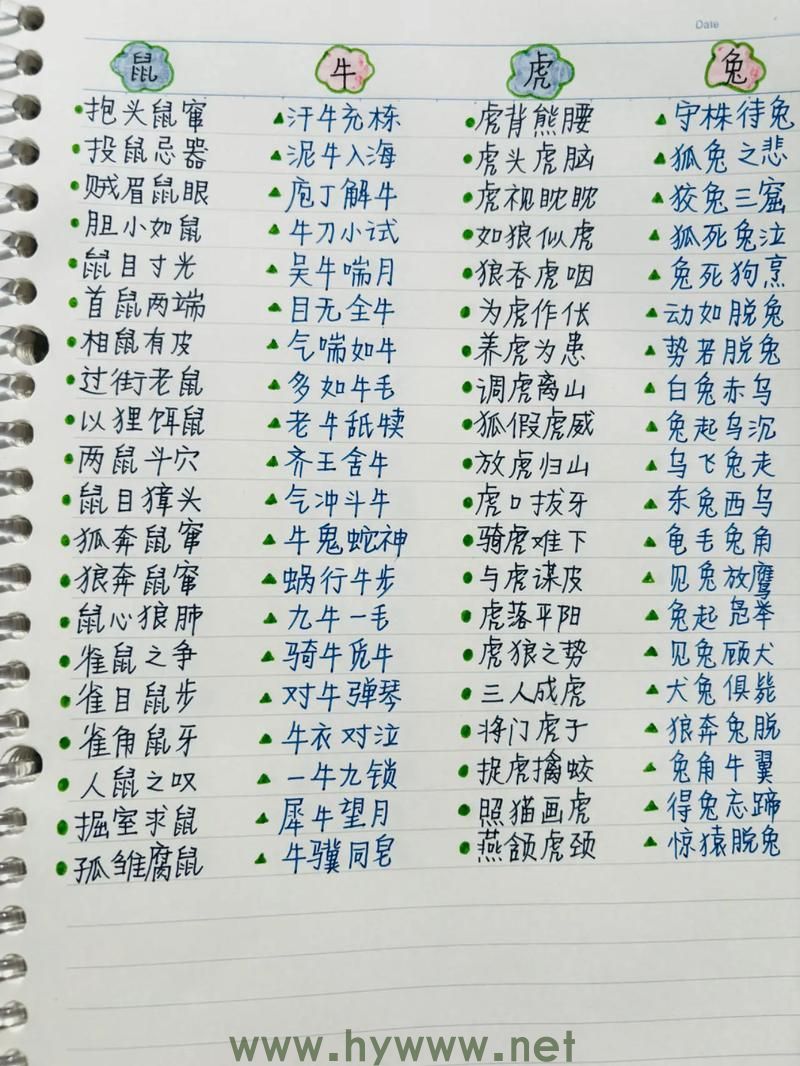 Date
鼠
抱头鼠窜
投鼠忌器
贼眉鼠眼
胆小如鼠
鼠目寸光
首鼠两端
相鼠有皮
过街老鼠
以狸饵鼠
两鼠斗穴
鼠目獐头
狐奔鼠窜
狼奔鼠窜
鼠心狼肺
雀鼠之争
雀目鼠步
雀角鼠牙
人鼠之叹
掘室求鼠
孤雏腐鼠
牛
汗牛充栋
泥牛入海
庖丁解牛
牛刀小试
吴牛喘月
目无全牛
气喘如牛
多如牛毛
老牛舐犊
齐王舍牛
气冲斗牛
牛鬼蛇神
蜗行牛步
九牛一毛
骑牛觅牛
对牛弹琴
牛衣对泣
一牛九锁
犀牛望月
牛骥同皂
虎
虎背熊腰
虎头虎脑
虎视眈眈
如狼似虎
狼吞虎咽
为虎作伥
养虎为患
调虎离山
狐假虎威
放虎归山
虎口拔牙
骑虎难下
与虎谋皮
虎落平阳
虎狼之势
三人成虎
将门虎子
捉虎擒蛟
照猫画虎
燕颔虎颈
兔
守株待兔
狐兔之悲
狡兔三窟
狐死兔泣
兔死狗烹
动如脱兔
势若脱兔
白兔赤乌
兔起乌沉
乌飞兔走
东兔西乌
龟毛兔角
见兔放鹰
兔起凫举
见兔顾犬
犬兔俱毙
狼奔兔脱
兔角牛翼
得兔忘蹄
惊猿脱兔
www.hywww.net